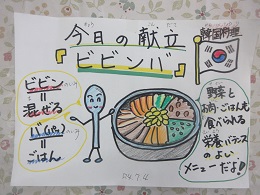 今日の献立
韓国料理
『ビビンバ』
ビビン
=
混ぜる
バ(パプ)
=
ごはん
野菜と
お肉・ごはんも
食べられる
栄養バランス
のよい
メニューだよ!